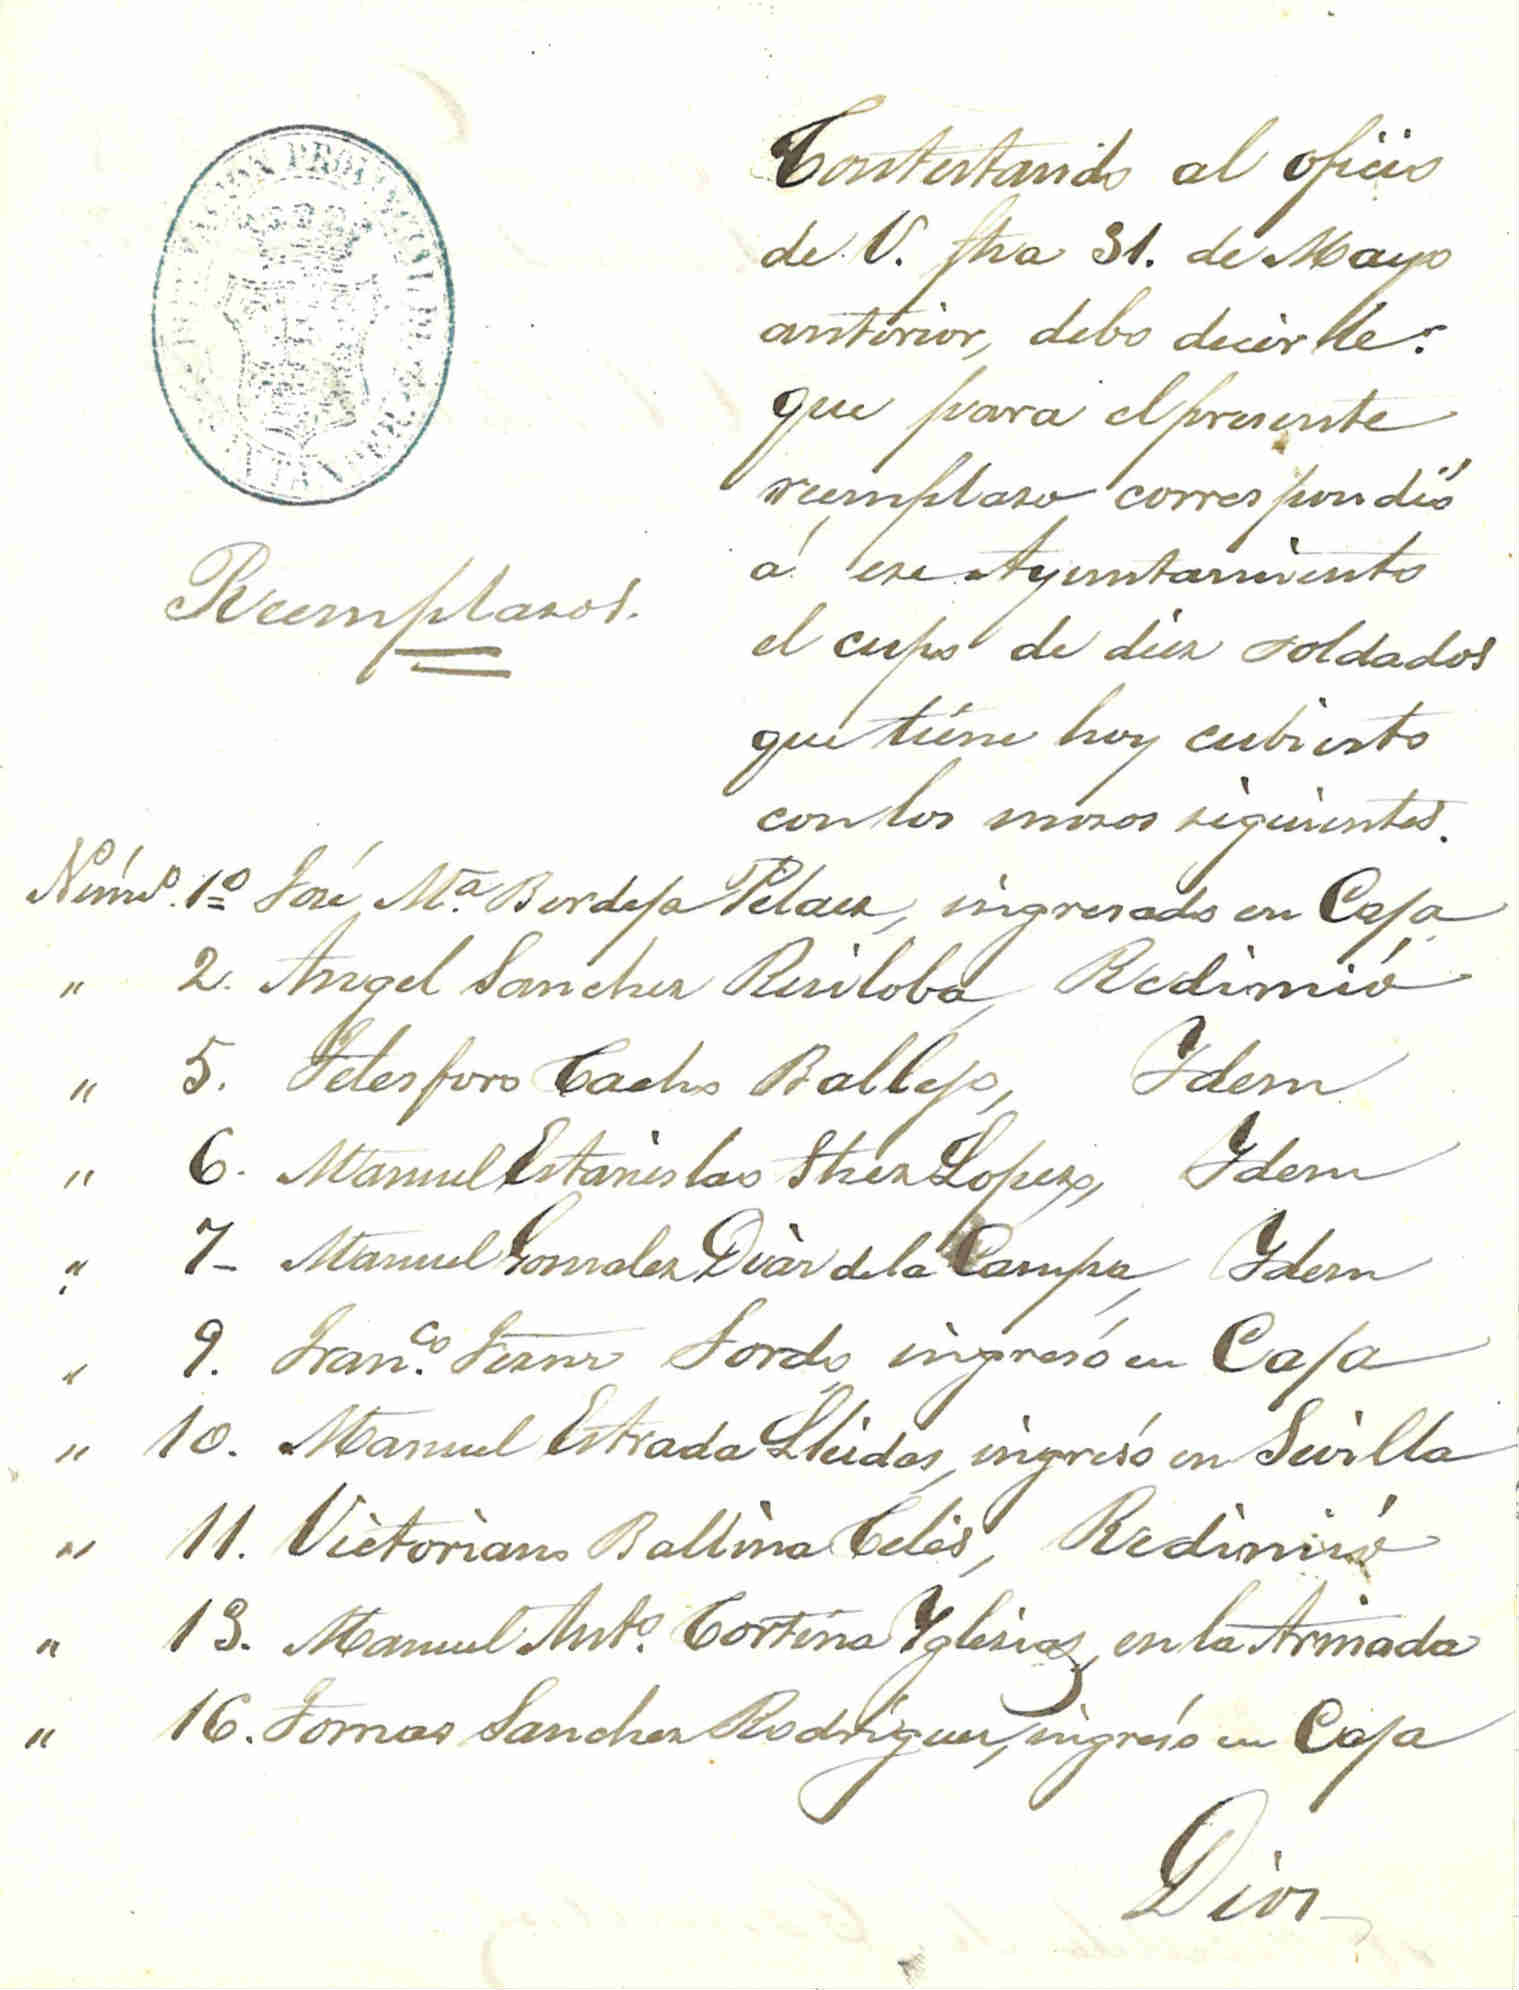 Contestando al oficio
de V. fha 31. de Mayo
anterior, debo decirle:
que para el presente
reemplazo correspondió
á ese Ayuntamiento
el cupo de diez soldados
que tiene hoy cubierto
con los mozos siguientes.
Reemplazos.
Núm.º 1º José M.ª Bordeja Pelaez, ingresado en Caja
" 2. Angel Sanchez Resiloba, Redimió
" 5. Telesforo Cacho Ballejo, Ydem
" 6. Manuel Estanislao Shez Lopez, Ydem
" 7- Manuel Gonzalez Diaz de la Campa, Ydem
" 9. Fran.co Fernz Sordo ingresó en Caja
" 10. Manuel Estrada ingresó en Sevilla
" 11. Victoriano Ballina Celis, Redimió
" 13. Manuel Ant.º Cortina Yglesias, en la Armada
" 16. Tomas Sanchez Rodriguez, ingresó en Caja
Dios